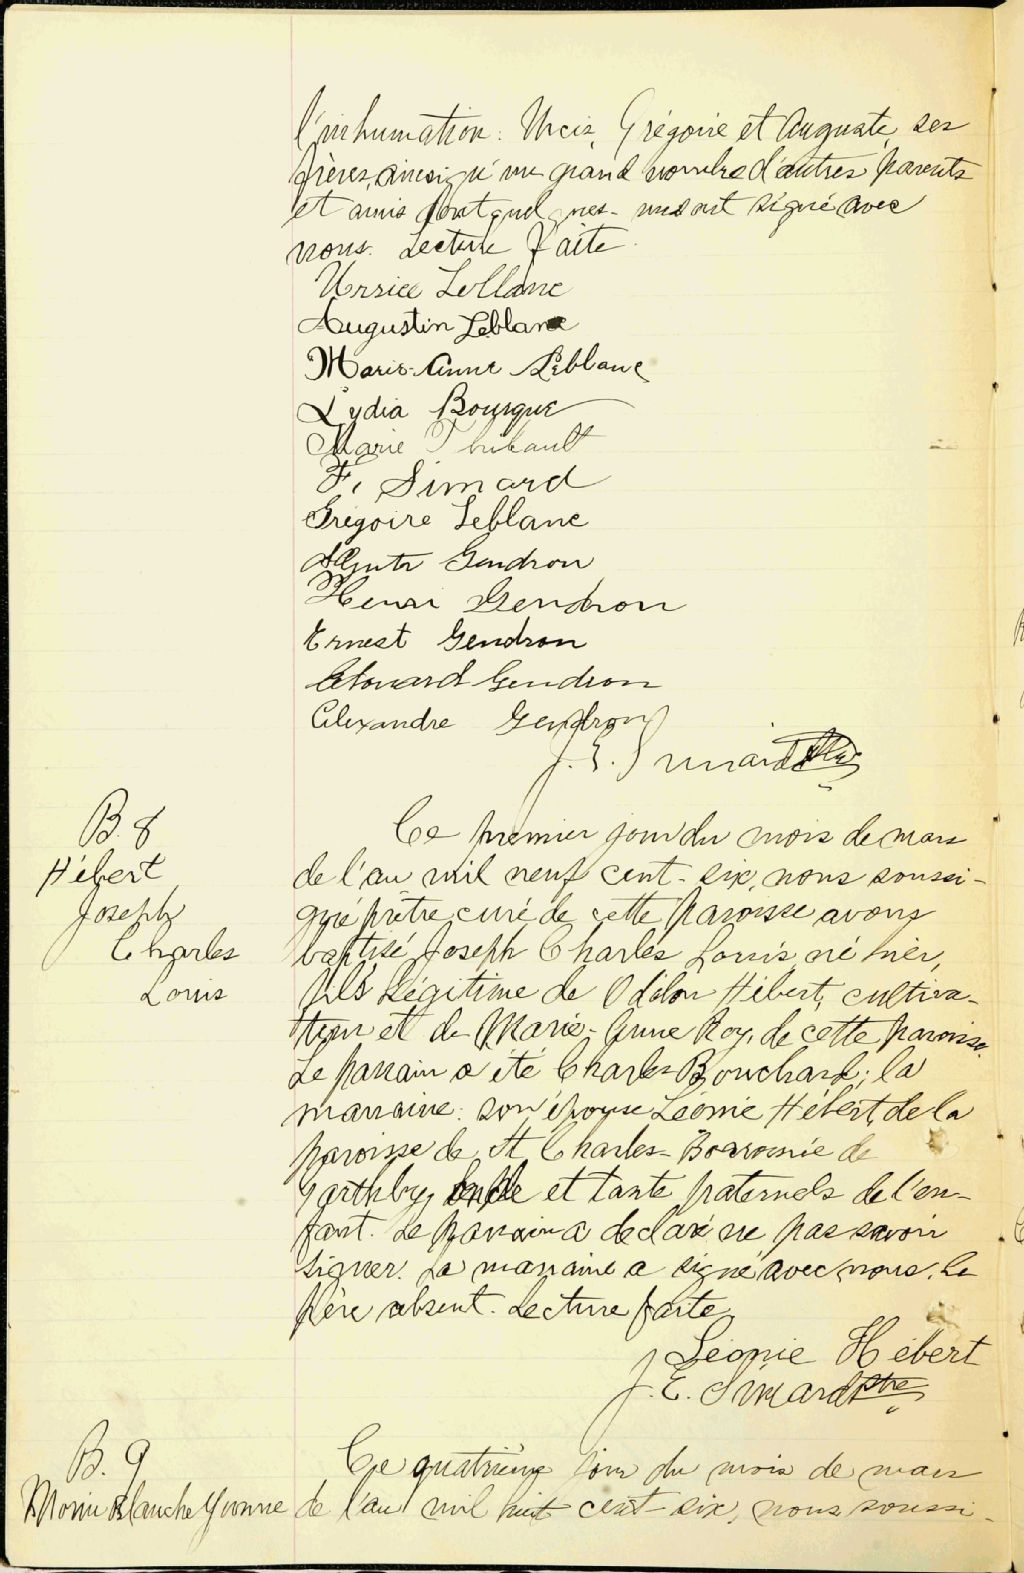 l'inhumation: Urcis, Grégoire et Auguste, ses
frères, ainsi qu'un grand nombre d'autres parents
et amis dont quelques-uns ont signé avec
nous. Lecture faite.
Ursice LeBlanc
Augustin Leblanc
Marie-Anne Leblanc
Lydia Bourque
Marie Thibault
F. Simard
Grégoire Leblanc
Gendron
Henri Gendron
Ernest Gendron
Edouard Gendron
Alexandre Gendron
J. E. Simard Ptre
B. 8
Hébert
Joseph
Charles
Louis
Ce premier jour du mois de mars
de l'an mil neuf cent-six, nous soussi-
gné prêtre curé de cette paroisse avons
baptisé Joseph Charles Louis, né hier,
fils légitime de Odilon Hébert, cultiva-
teur et de Marie-Anne Roy, de cette paroisse.
Le parrain a été Charles Bouchard; la
marraine: son épouse Léonie Hébert, de la
paroisse de St Charles-Borromée de
Garthby, oncle et tante paternels de l'en-
fant. Le parrain a déclaré ne pas savoir
signer. La marraine a signé avec nous. Le
père absent. Lecture faite
Léonie Hébert
J. E. Simard ptre
B. 9
Morin Blanche Yvonne
Ce quatrième jour du mois de mars
de l'an mil huit cent-six, nous soussi-